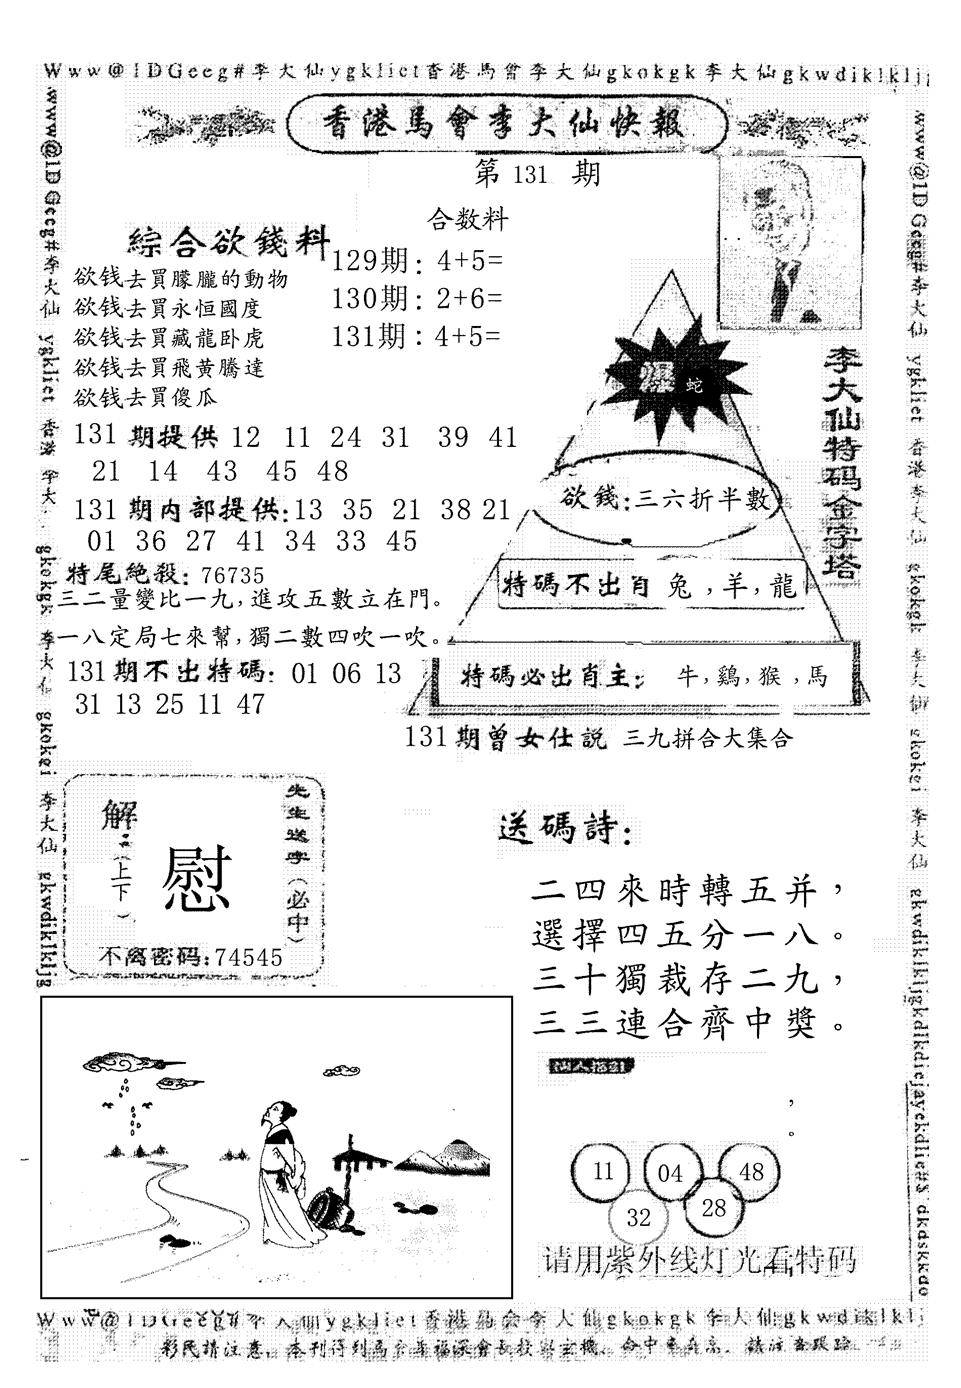 Www@1DGeeg#李大仙ygkliet香港馬會李大仙gkokgk李大仙gkwdiklkljg
香港馬會李大仙快報
第 131 期
綜合欲錢料
欲钱去買朦朧的動物
欲钱去買永恒國度
欲钱去買藏龍卧虎
欲钱去買飛黃騰達
欲钱去買傻瓜
合数料
129期: 4+5=
130期: 2+6=
131期: 4+5=
131 期提供 12 11 24 31 39 41
21 14 43 45 48
131 期内部提供:13 35 21 38 21
01 36 27 41 34 33 45
特尾絶殺: 76735
三二量變比一九,進攻五數立在門。
一八定局七來幫,獨二數四吹一吹。
131 期不出特碼: 01 06 13
31 13 25 11 47
爆 蛇
欲錢:三六折半數
特碼不出肖 兔,羊,龍
特碼必出肖主: 牛,鷄,猴,馬
李大仙特码金字塔
131 期曾女仕説 三九拼合大集合
先生送字(必中)
解:(上下)
慰
不离密码:74545
送碼詩:
二四來時轉五并,
選擇四五分一八。
三十獨裁存二九,
三三連合齊中獎。
,
。
11 04 48
32 28
请用紫外线灯光看特码
www@1DGeeg#李大仙 ygkliet 香港 李大 gkokgk 李大仙 gkokei 李大仙 gkwdiklkljg
www@1DGeeg#李大仙 ygkliet 香港李大仙 gkokgk 李大仙 gkokei 李大仙
Www@1DGeeg#李大仙ygkliet香港馬會李大仙gkokgk李大仙gkwdiklklj